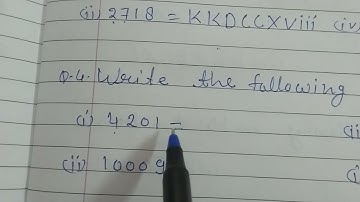 (ii) 2718 = KKDCCXViii (iv)
Q.4. Write the following
(i) 4201 =
(ii
(iii) 10009
(i